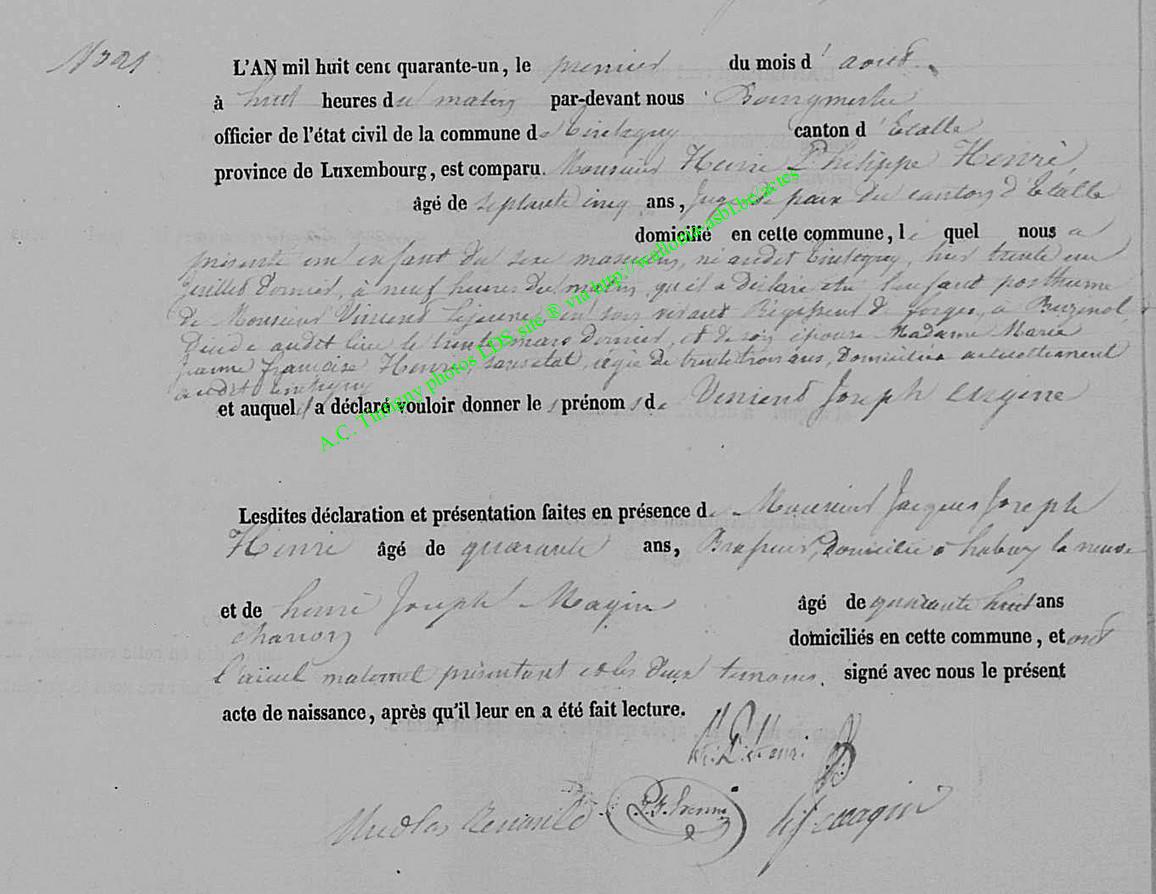 N° 21
L'AN mil huit cent quarante-un, le premier du mois d'aout.
à huit heures du matin par-devant nous Bourgmestre
officier de l'état civil de la commune de Tintigny canton d'Etalle
province de Luxembourg, est comparu. Monsieur Henri Philippe Henri
âgé de septante cinq ans, Juge de paix du canton d'Etalle
domicilié en cette commune, le quel nous a
présenté un enfant du sexe masculin, né audit Tintigny, hier trente un
juillet dernier, à neuf heures du matin, qu'il a déclaré être l'enfant posthume
de Monsieur Vincent Lejeune, en son vivant Régisseur de forges, à Buzenol
décédé audit lieu le trente mars dernier, et de son épouse Madame Marie
Jeanne françoise Henri, sans état, agée de trente trois ans, domiciliée actuellement
audit Tintigny
et auquel il a déclaré vouloir donner les prénoms de Vincent Joseph Eugène
Lesdites déclaration et présentation faites en présence de Monsieur Jacques Joseph
Henri âgé de quarante ans, Brasseur, domicilié à habay la neuve
et de henri Joseph Magin âgé de quarante huit ans
charron domiciliés en cette commune, et ont
l'aieul maternel présentant et les deux temoins. signé avec nous le présent
acte de naissance, après qu'il leur en a été fait lecture.
H. P. Henri
Nicolas J. J. Henri h j magin
A.C. Tintigny photos LDS site ® via http://wallonia.asbl.be/actes